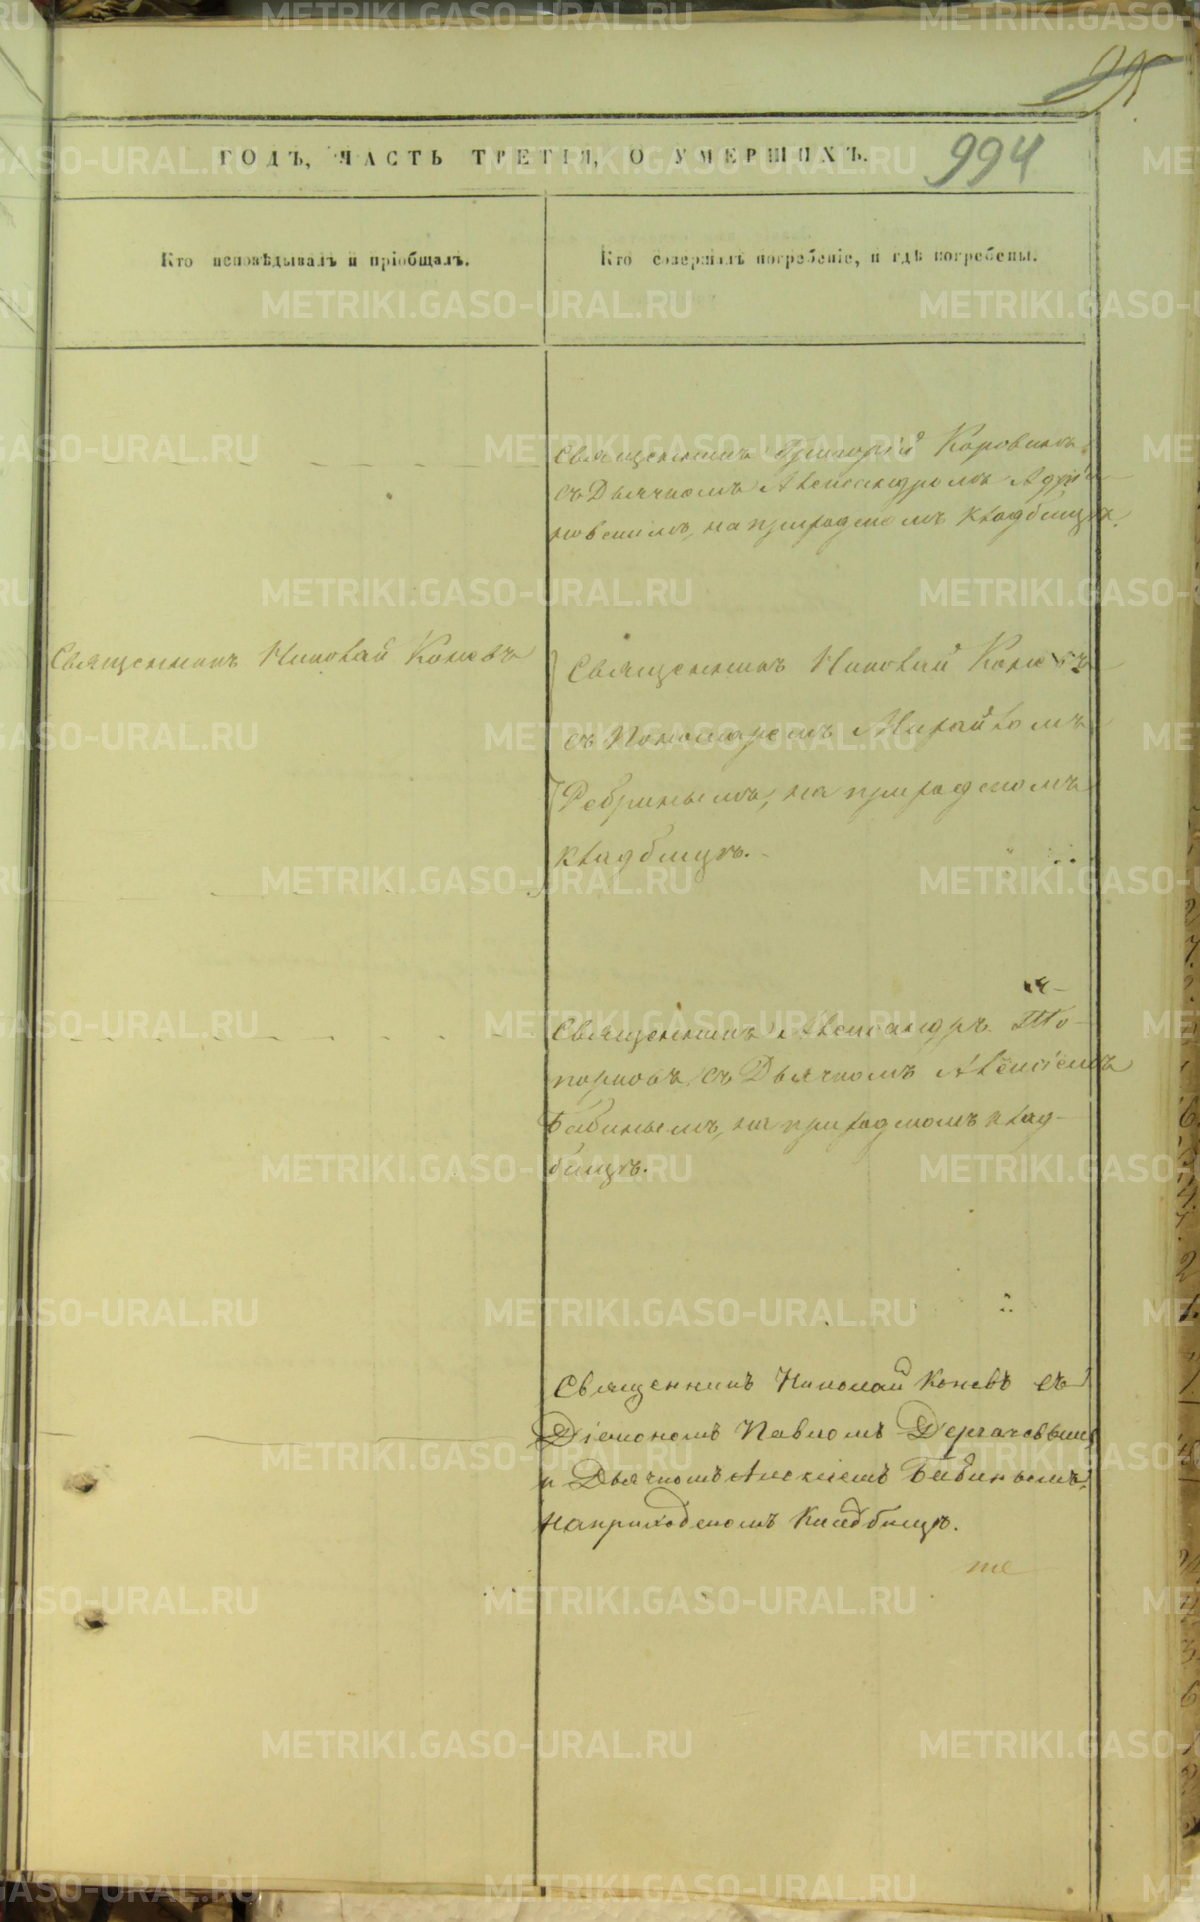 994
ГОДЪ, ЧАСТЬ ТРЕТІЯ, О УМЕРШИХЪ.
Кто исповѣдывалъ и пріобщалъ.
Кто совершалъ погребеніе, и гдѣ погребены.
Священникъ Григорій Коровинъ
съ Дьячкомъ Александромъ Адріа-
новскимъ, на приходскомъ кладбищѣ.
Священникъ Николай Коневъ
Священникъ Николай Коневъ
съ Пономаремъ Михайломъ
Ребринымъ, на приходскомъ
кладбищѣ.
Священникъ Александръ То-
порковъ, съ Дьячкомъ Алексіемъ
Бабинымъ, на приходскомъ клад-
бищѣ.
Священникъ Николай Коневъ съ
Діакономъ Павломъ Дергачевымъ
и Дьячкомъ Алексіемъ Бабинымъ,
на приходскомъ Кладбищѣ.
METRIKI.GASO-URAL.RU